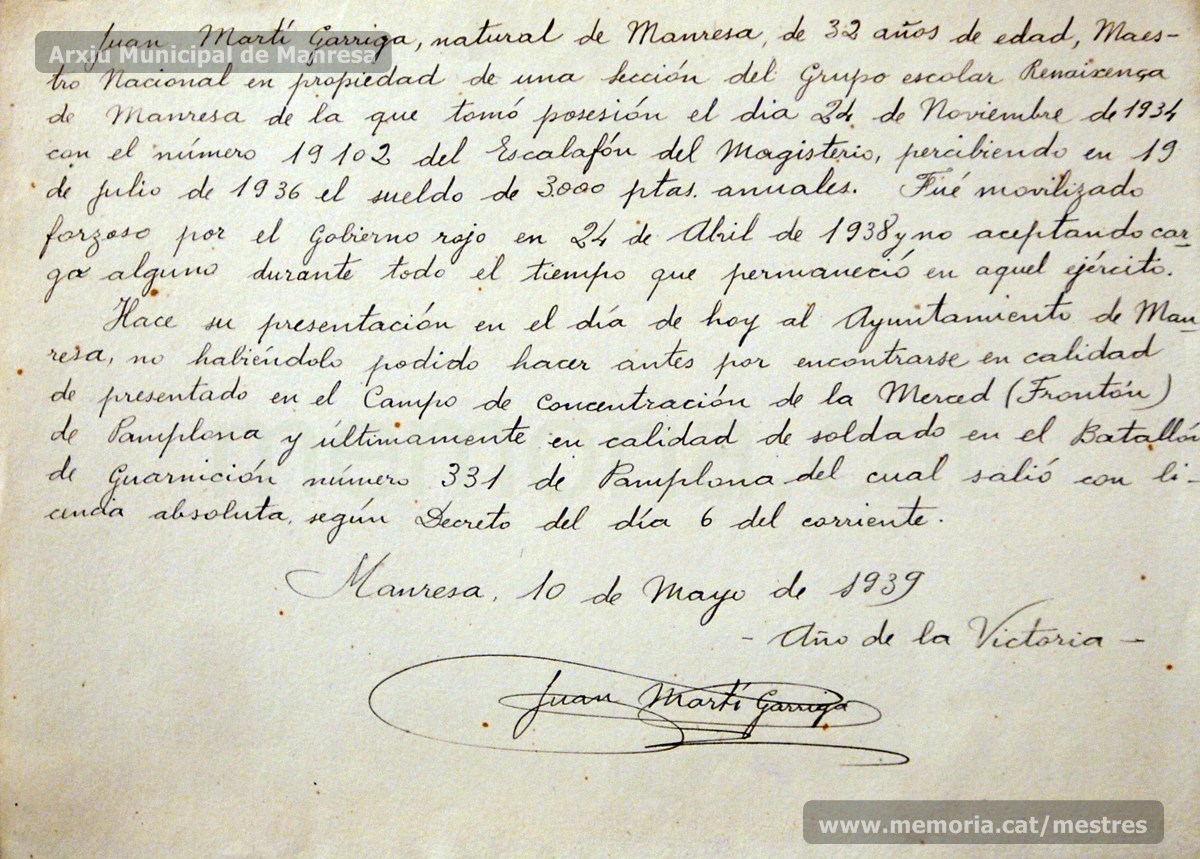 Juan Martí Garriga, natural de Manresa, de 32 años de edad, Maes-
Arxiu Municipal de Manresa
tro Nacional en propiedad de una sección del Grupo escolar Renaixença
de Manresa de la que tomó posesión el dia 24 de Noviembre de 1934
con el número 19102 del Escalafón del Magisterio, percibiendo en 19
de julio de 1936 el sueldo de 3.000 ptas. anuales. Fué movilizado
forzoso por el Gobierno rojo en 24 de Abril de 1938 y no aceptando car-
go alguno durante todo el tiempo que permaneció en aquel ejército.
Hace su presentación en el día de hoy al Ayuntamiento de Man-
resa, no habiéndolo podido hacer antes por encontrarse en calidad
de presentado en el Campo de Concentración de la Merced (Frontón)
de Pamplona y últimamente en calidad de soldado en el Batallón
de Guarnición número 331 de Pamplona del cual salió con li-
cencia absoluta, según Decreto del día 6 del corriente.
Manresa, 10 de Mayo de 1939
- Año de la Victoria -
Juan Martí Garriga
www.memoria.cat/mestres